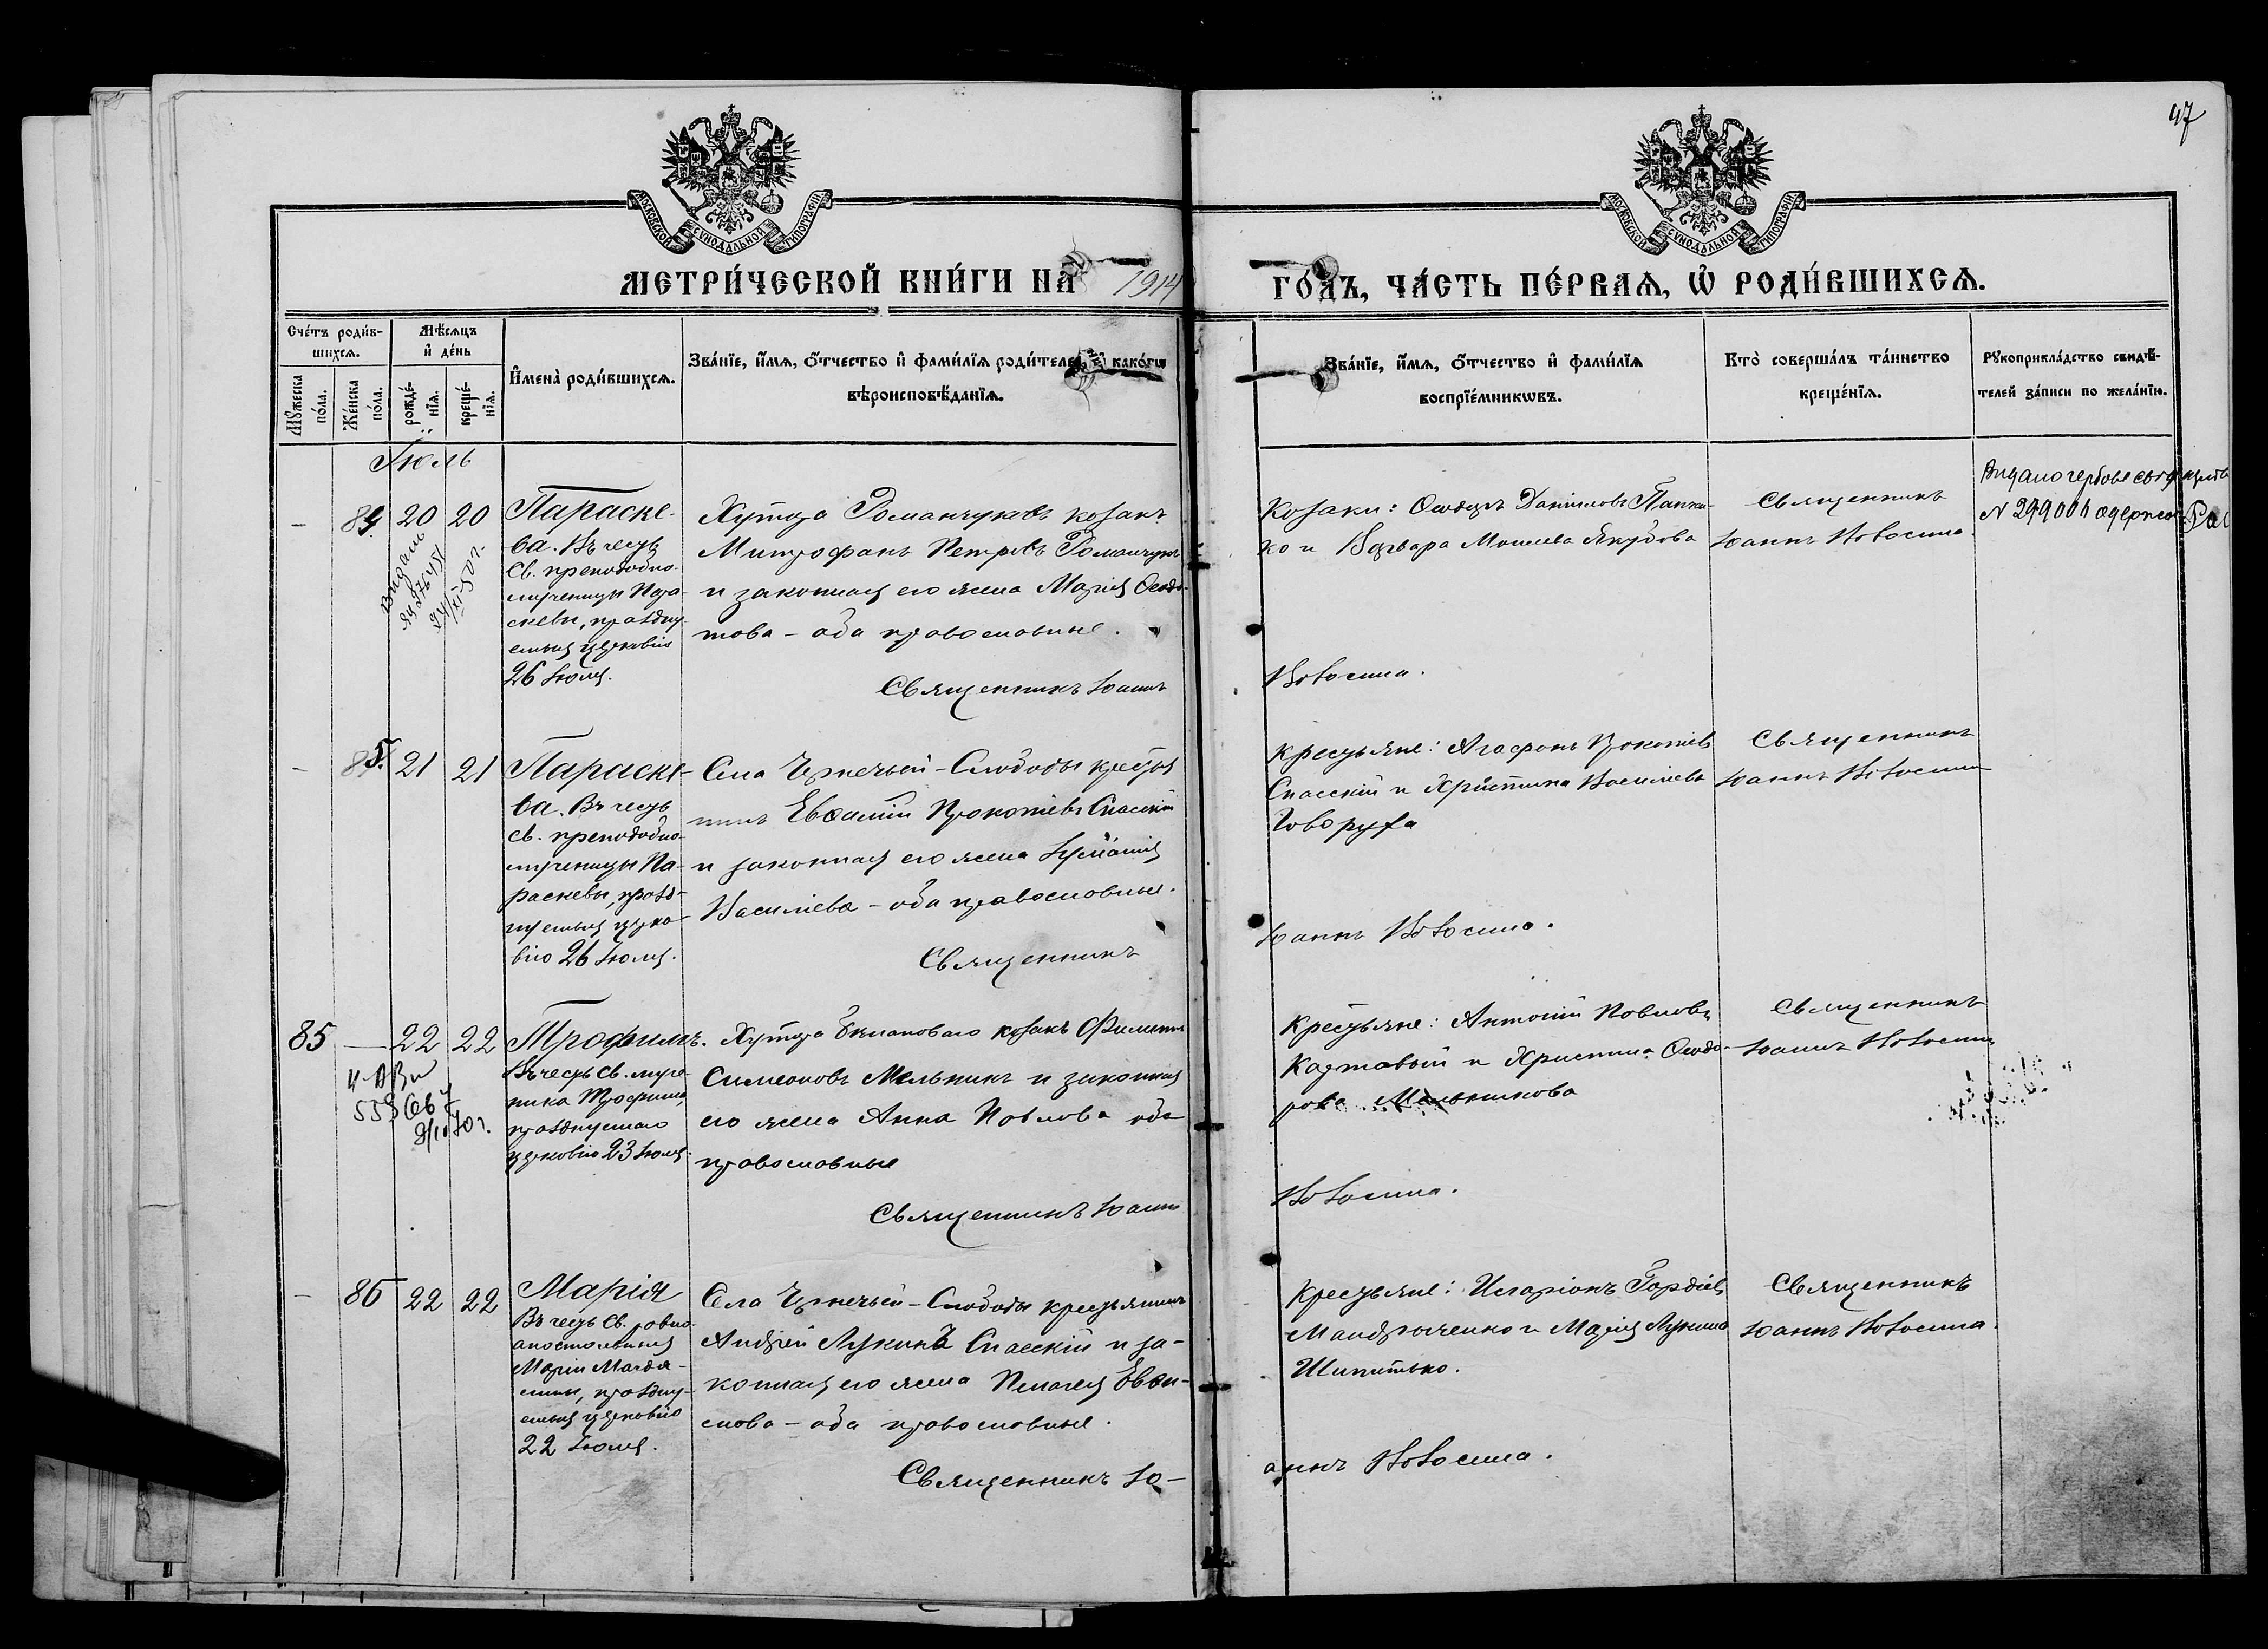 47
МОСКОВСКОЙ СУНОДАЛЬНОЙ ТИПОГРАФІИ.
МОСКОВСКОЙ СУНОДАЛЬНОЙ ТИПОГРАФІИ.
МЕТРИ́ЧЕСКОЙ КНИ́ГИ НА 1914 ГО́ДЪ, ЧА́СТЬ ПЕ́РВАѦ, Ѡ҆ РОДИ́ВШИХСѦ.
Сче́тъ роди́в-
шихсѧ.
Мꙋжеска
по́ла.
Же́нска
по́ла.
Мѣ́сѧцъ
и҆ де́нь
рожде́-
нїѧ.
креще́-
нїѧ.
И҆мена̀ роди́вшихсѧ.
Зва́нїе, и҆́мѧ, ѻ҆́тчество и҆ фами́лїѧ роди́телей, и҆ како́гѡ
вѣроисповѣ́данїѧ.
Зва́нїе, и҆́мѧ, ѻ҆́тчество и҆ фами́лїѧ
воспрїе́мникѡвъ.
Кто̀ соверша́лъ та́инство
креще́нїѧ.
Рꙋкоприкла́дство свидѣ́-
телей за́писи по жела́нїю.
Іюль
— 84. 20 20
Параске-
ва. Въ честь
Св. преподобно-
мученицы Пара-
скевы, праздну-
емыя церковію
26 Іюля.
Хутора Романчуковъ козакъ
Митрофанъ Петровъ Романчукъ
и законная его жена Марія Ѳеодо-
това – оба православные.
Священникъ Іоаннъ
Козаки: Ѳеодоръ Даніиловъ Панчен-
ко и Варвара Моисеева Якубова
Новосила.
Священникъ
Іоаннъ Новосила.
Видано гербове свидоцтво
N 299001
— 85. 21 21
Параске-
ва. Въ честь
св. преподобно-
мученицы Па-
раскевы, празд-
нуемыя церко-
вію 26 Іюля.
Села Чернечьей-Слободы крестья
нинъ Евѳимій Прокопіевъ Спасскій
и законная его жена Іуліанія
Василіева – оба православные.
Священникъ
Крестьяне: Агафонъ Прокопіевъ
Спасскій и Христина Василіева
Говоруха
Іоаннъ Новосила.
Священникъ
Іоаннъ Новосила
85 — 22 22
Трофимъ.
Въ честь Св. муче-
ника Трофима,
празднуемаго
церковію 23 Іюля.
козакъ Филиппъ
Симеоновъ Мельникъ и законная
его жена Анна Павлова оба
православные
Священникъ Іоаннъ
Крестьяне: Антоній Павловъ
Картавый и Христина Ѳеодо-
рова Мельникова
Новосила.
Священникъ
Іоаннъ Новосила
— 86 22 22
Марія
Въ честь Св. равно-
апостольныя
Маріи Магда-
лины, праздну-
емыя церковію
22 Іюля.
Села Чернечьей-Слободы крестьянинъ
Андрей Лукинъ Спасскій и за-
конная его жена Пелагея Евѳи-
мова – оба православные.
Священникъ Іо-
Крестьяне: Иларіонъ Гордіевъ
Мандрыченко и Марія Лукина
Шипитько.
аннъ Новосила.
Священникъ
Іоаннъ Новосила.